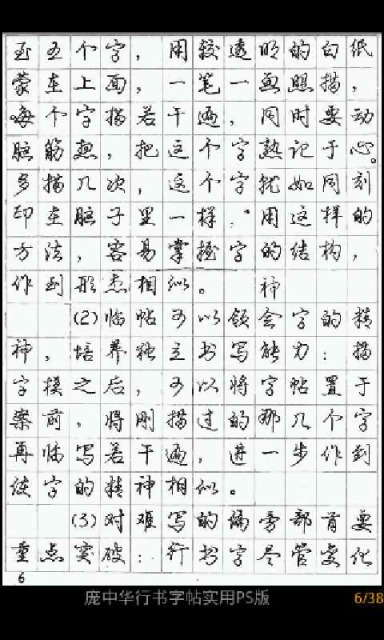 至五个字，用较透明的白纸
蒙在上面，一笔一画照描，
每个字描若干遍，同时要动
脑筋想，把这个字熟记于心。
多描几次，这个字就如同刻
印在脑子里一样。用这样的
方法，容易掌握字的结构，
作到形态相似。神
(2)临帖可以领会字的精
神，培养独立书写能力：描
字摸之后，可以将字帖置于
案前，将刚描过的那几个字
再临写若干遍，进一步作到
使字的精神相似。
(3)对难写的偏旁部首要
重点突破：行书字尽管变化
6
庞中华行书字帖实用PS版
6/38